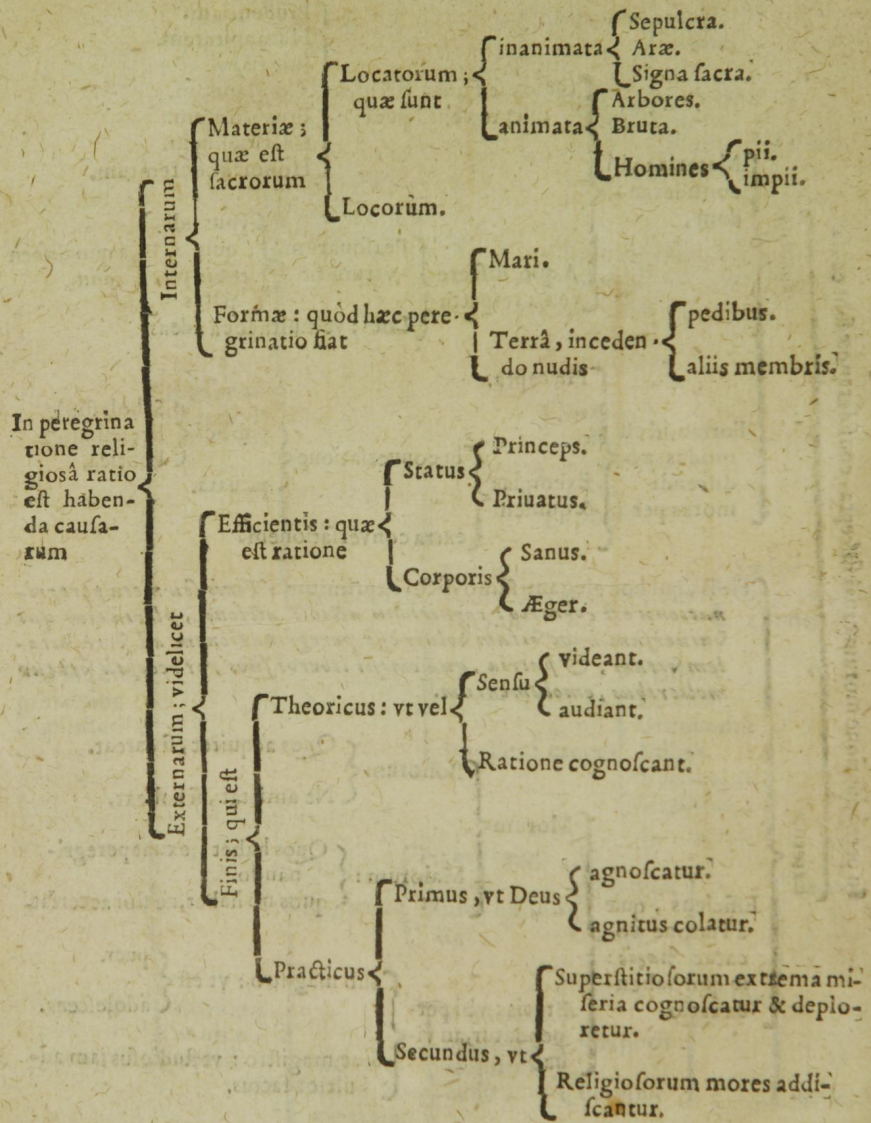 In peregrina
tione reli-
giosâ ratio
est haben-
da causa-
rum
Internarum
Materiæ ;
quæ est
sacrorum
Locatorum ;
quæ sunt
inanimata
Sepulcra.
Aræ.
Signa sacra.
animata
Arbores.
Bruta.
Homines
pii.
impii.
Locorum.
Formæ : quòd hæc pere-
grinatio fiat
Mari.
Terrâ, inceden-
do nudis
pedibus.
aliis membris.
Externarum ; videlicet
Efficientis : quæ
est ratione
Status
Princeps.
Priuatus.
Corporis
Sanus.
Æger.
Finis ; qui est
Theoricus : vt vel
Sensu
videant.
audiant.
Ratione cognoscant.
Practicus
Primus, vt Deus
agnoscatur.
agnitus colatur.
Secundus, vt
Superstitiosorum extrema mi-
seria cognoscatur & deplo-
retur.
Religiosorum mores addi-
scantur.